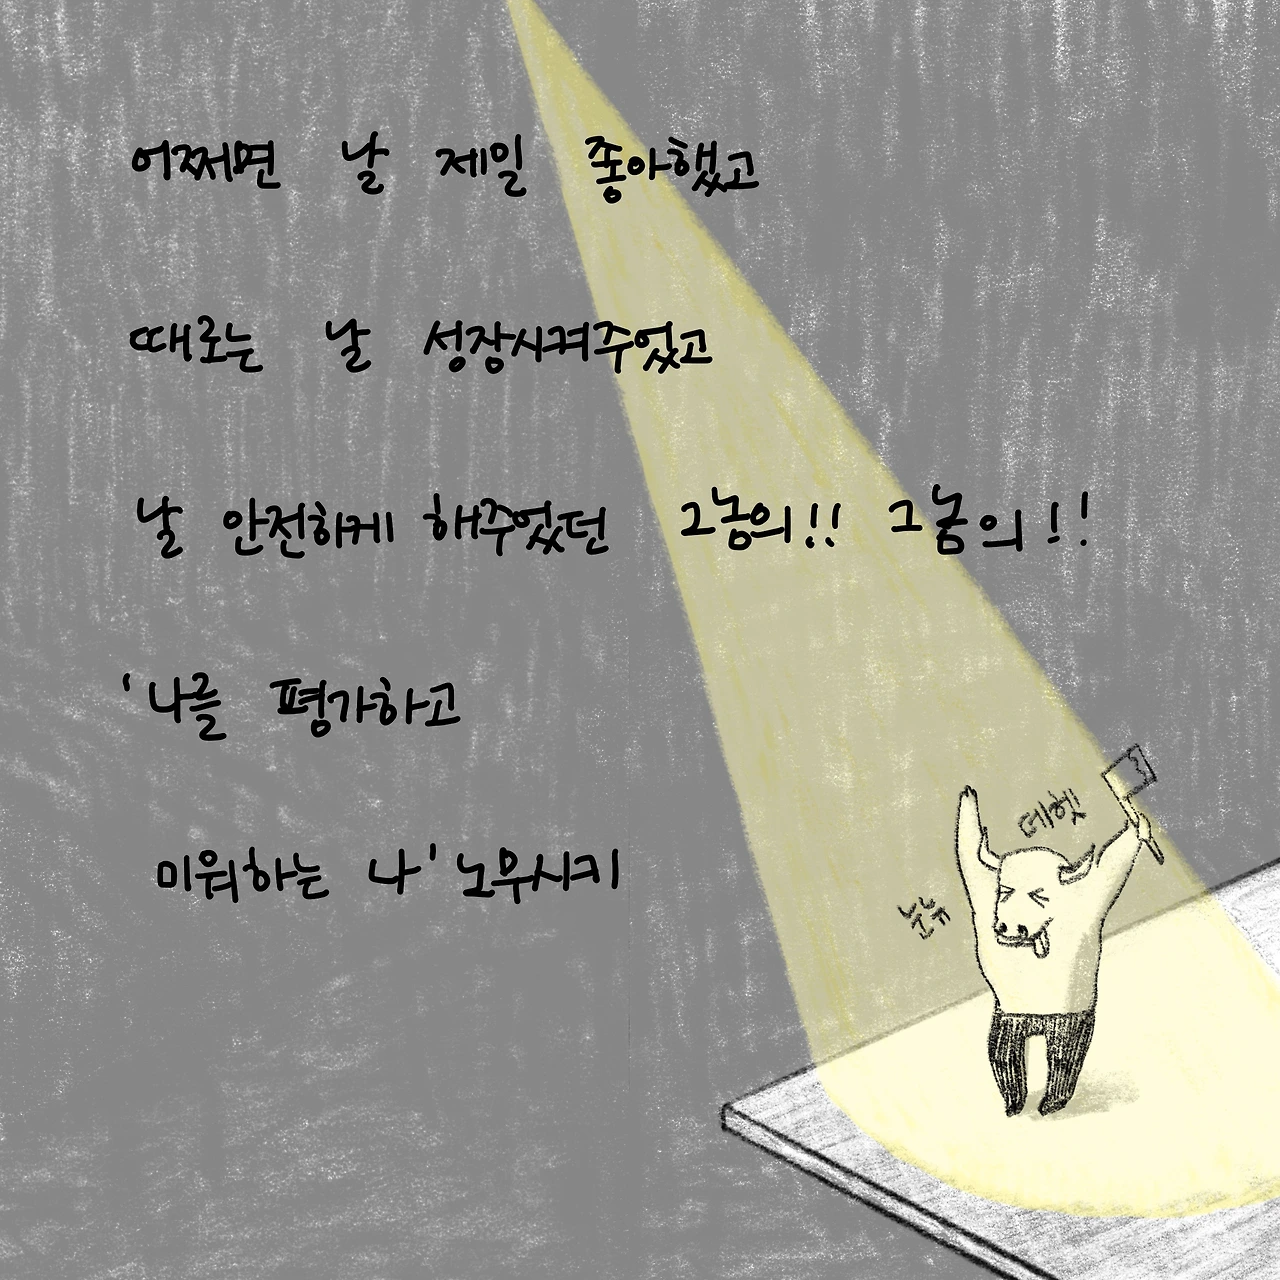 어쩌면 날 제일 좋아했고
때로는 날 성장시켜주었고
날 안전하게 해주었던 그놈의!! 그놈의!!
'나를 평가하고
미워하는 나' 노무시키
데헷!
눈뉴
3